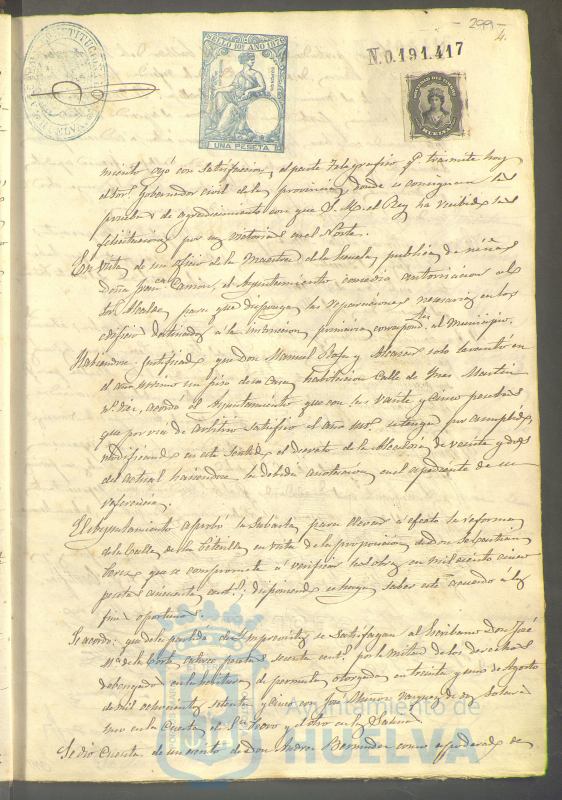 299
4.
SELLO 10º AÑO 1876
UNA PESETA
N.0.191.417
HUELVA
miento oyó con satisfaccion, el parte telegrafico qe. trasmite hoy
el Sor. Gobernador civil de la provincia, donde se consignan las
pruebas de agradecimiento con que S. M. el Rey ha recibido las
felicitaciones por sus victorias en el Norte.
En vista de un oficio de la Maestra de la Escuela publica de niñas
Doña Carrion, el Ayuntamiento, concedió autorizacion al
Sor. Alcalde para que disponga las reparaciones necesarias en los
edificios destinados a la instruccion primaria correspond.tes al Municipio.
Habiendose justificado que Don Manuel Rafa y Alcazar solo levantó en
el año un piso de su casa habitacion Calle de Ines Martin
acordó el Ayuntamiento que con las veinte y cinco pesetas
que por via de arbitrio satisfizo el año se tenga por cumplido
modificando en este sentido el decreto de la Alcaldia de veinte y dos
del actual haciendose la debida anotacion en el expediente de su
referencia.
El Ayuntamiento aprobó la subasta para llevar a efecto la reforma
de la Calle de la en vista de la proposicion de Don Sebastian
Perez que se compromete á verificar las obras en mil ciento cinco
pesetas cincuenta cent.s; disponiendo se haga saber este acuerdo á los
fines oportunos.
Se acordó: que de la partida de Imprevistos se satisfagan al Escribano Don José
Mª de la Corte catorce pesetas sesenta cent.s por la mitad de los derechos
devengados en la escritura de permuta otorgada en treinta y uno de Agosto
de mil ochocientos setenta y cinco con José Muñoz Vazquez de un solar
uno en la Cuesta del y el otro en la
Se dió cuenta de un escrito de Don Bermudez como apoderado de
Ayuntamiento de
HUELVA